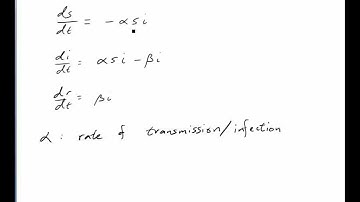 ds/dt = - αsi
di/dt = αsi - βi
dr/dt = βi
α : rate of transmission/infection